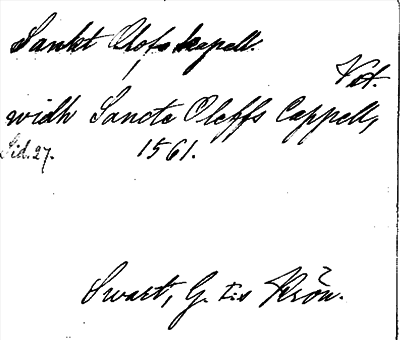 Sankt Olofs kapell.
Vet.
widh Sancte Oleffs Cappell,
Sid. 27. 1561.
Swart, G. I:s Krön.